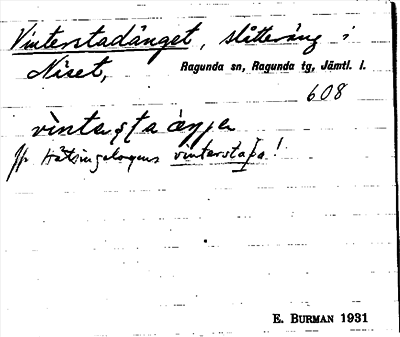 Vinterstadänget, slåtteräng i
Näset, Ragunda sn, Ragunda tg, Jämtl. l.
608
vintersta
jfr Hälsingelagens vinterstaþa!
E. BURMAN 1931